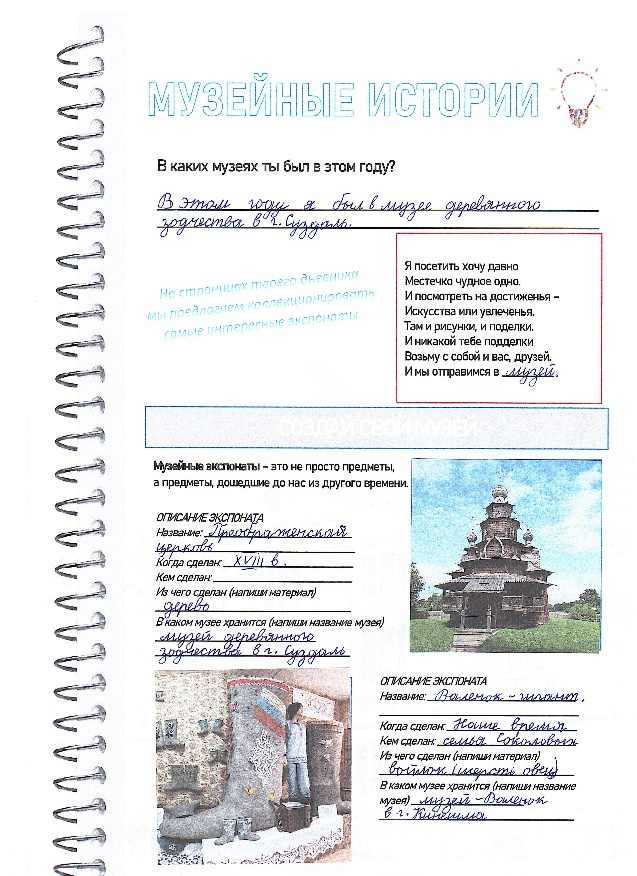 МУЗЕЙНЫЕ ИСТОРИИ
В каких музеях ты был в этом году?
В этом году я был в музее деревянного
зодчества в г. Суздаль.
На страницах твоего дневника
мы предлагаем коллекционировать
самые интересные экспонаты.
Я посетить хочу давно
Местечко чудное одно.
И посмотреть на достиженья –
Искусства или увлеченья.
Там и рисунки, и поделки.
И никакой тебе подделки
Возьму с собой и вас, друзей.
И мы отправимся в музей.
СОЗДАЙ СВОЙ МУЗЕЙ
Музейные экспонаты – это не просто предметы,
а предметы, дошедшие до нас из другого времени.
ОПИСАНИЕ ЭКСПОНАТА
Название: Преображенская
церковь
Когда сделан: XVIII в.
Кем сделан:
Из чего сделан (напиши материал)
дерево
В каком музее хранится (напиши название музея)
музей деревянного
зодчества в г. Суздаль
ОПИСАНИЕ ЭКСПОНАТА
Название: Валенок - гигант.
Когда сделан: Наше время
Кем сделан: семья Соколовых
Из чего сделан (напиши материал)
войлок (шерсть овец)
В каком музее хранится (напиши название
музея) музей - Валенок
в г. Кинешма